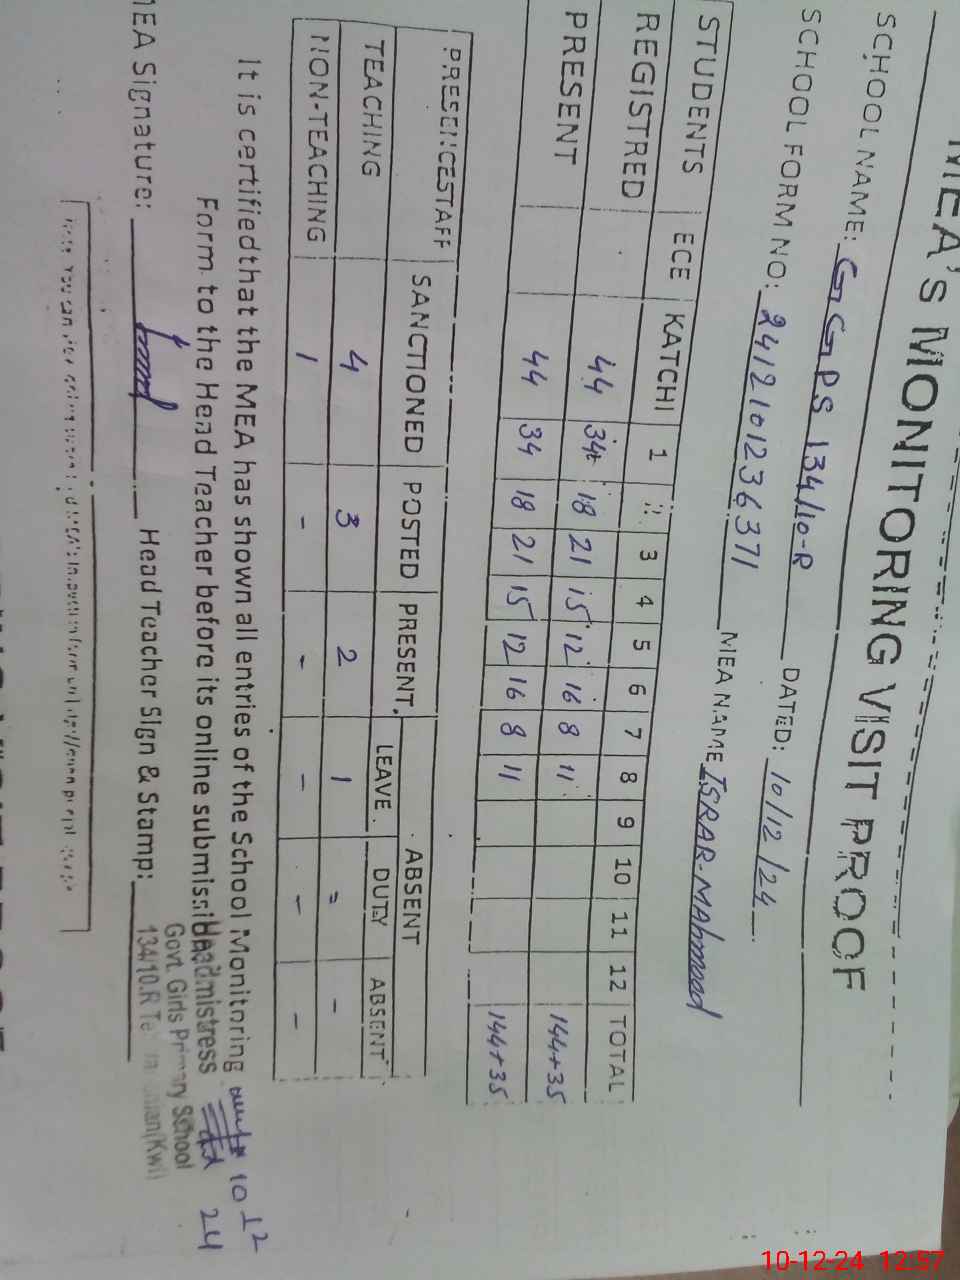 MEA'S MONITORING VISIT PROOF
SCHOOL NAME: GGPS 134/10-R
SCHOOL FORM NO: 2412101236371 DATED: 10/12/24
MEA NAME ISRAR-MAhmood
STUDENTS ECE KATCHI 1 2 3 4 5 6 7 8 9 10 11 12 TOTAL
REGISTRED 44 34 18 21 15 12 16 8 11 144+35
PRESENT 44 34 18 21 15 12 16 8 11 144+35
PRESENCESTAFF SANCTIONED POSTED PRESENT ABSENT
LEAVE DUTY ABSENT
TEACHING 4 3 2 1 - -
NON-TEACHING 1 - - - - -
It is certified that the MEA has shown all entries of the School Monitoring
Form to the Head Teacher before its online submission
MEA Signature: Head Teacher Sign & Stamp:
Headmistress
Govt. Girls Primary School
134/10.R
10 12
24
10-12-24 12:57